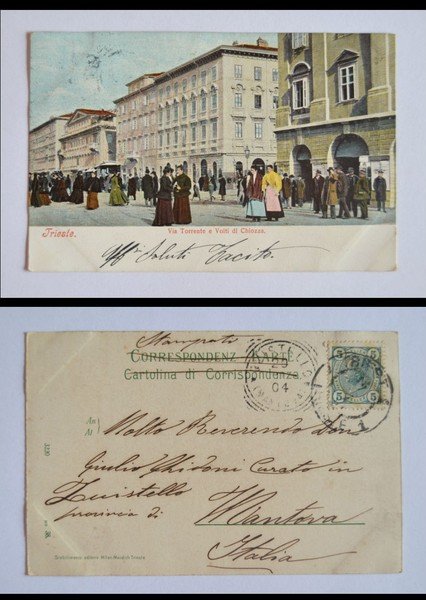 Trieste.
Via Torrente e Volti di Chiozza.
Saluti Tacito.
Stampato
CORRESPONDENZ-KARTE
Cartolina di Corrispondenza
An
A
Molto Reverendo Don
Giulio Ghidoni Curato in
Quistello
provincia di
Mantova
Italia
QUISTELLO
04
(MANTOVA)
TRIEST
5 5
1330
Stabilimento editore Milan Maraich Trieste